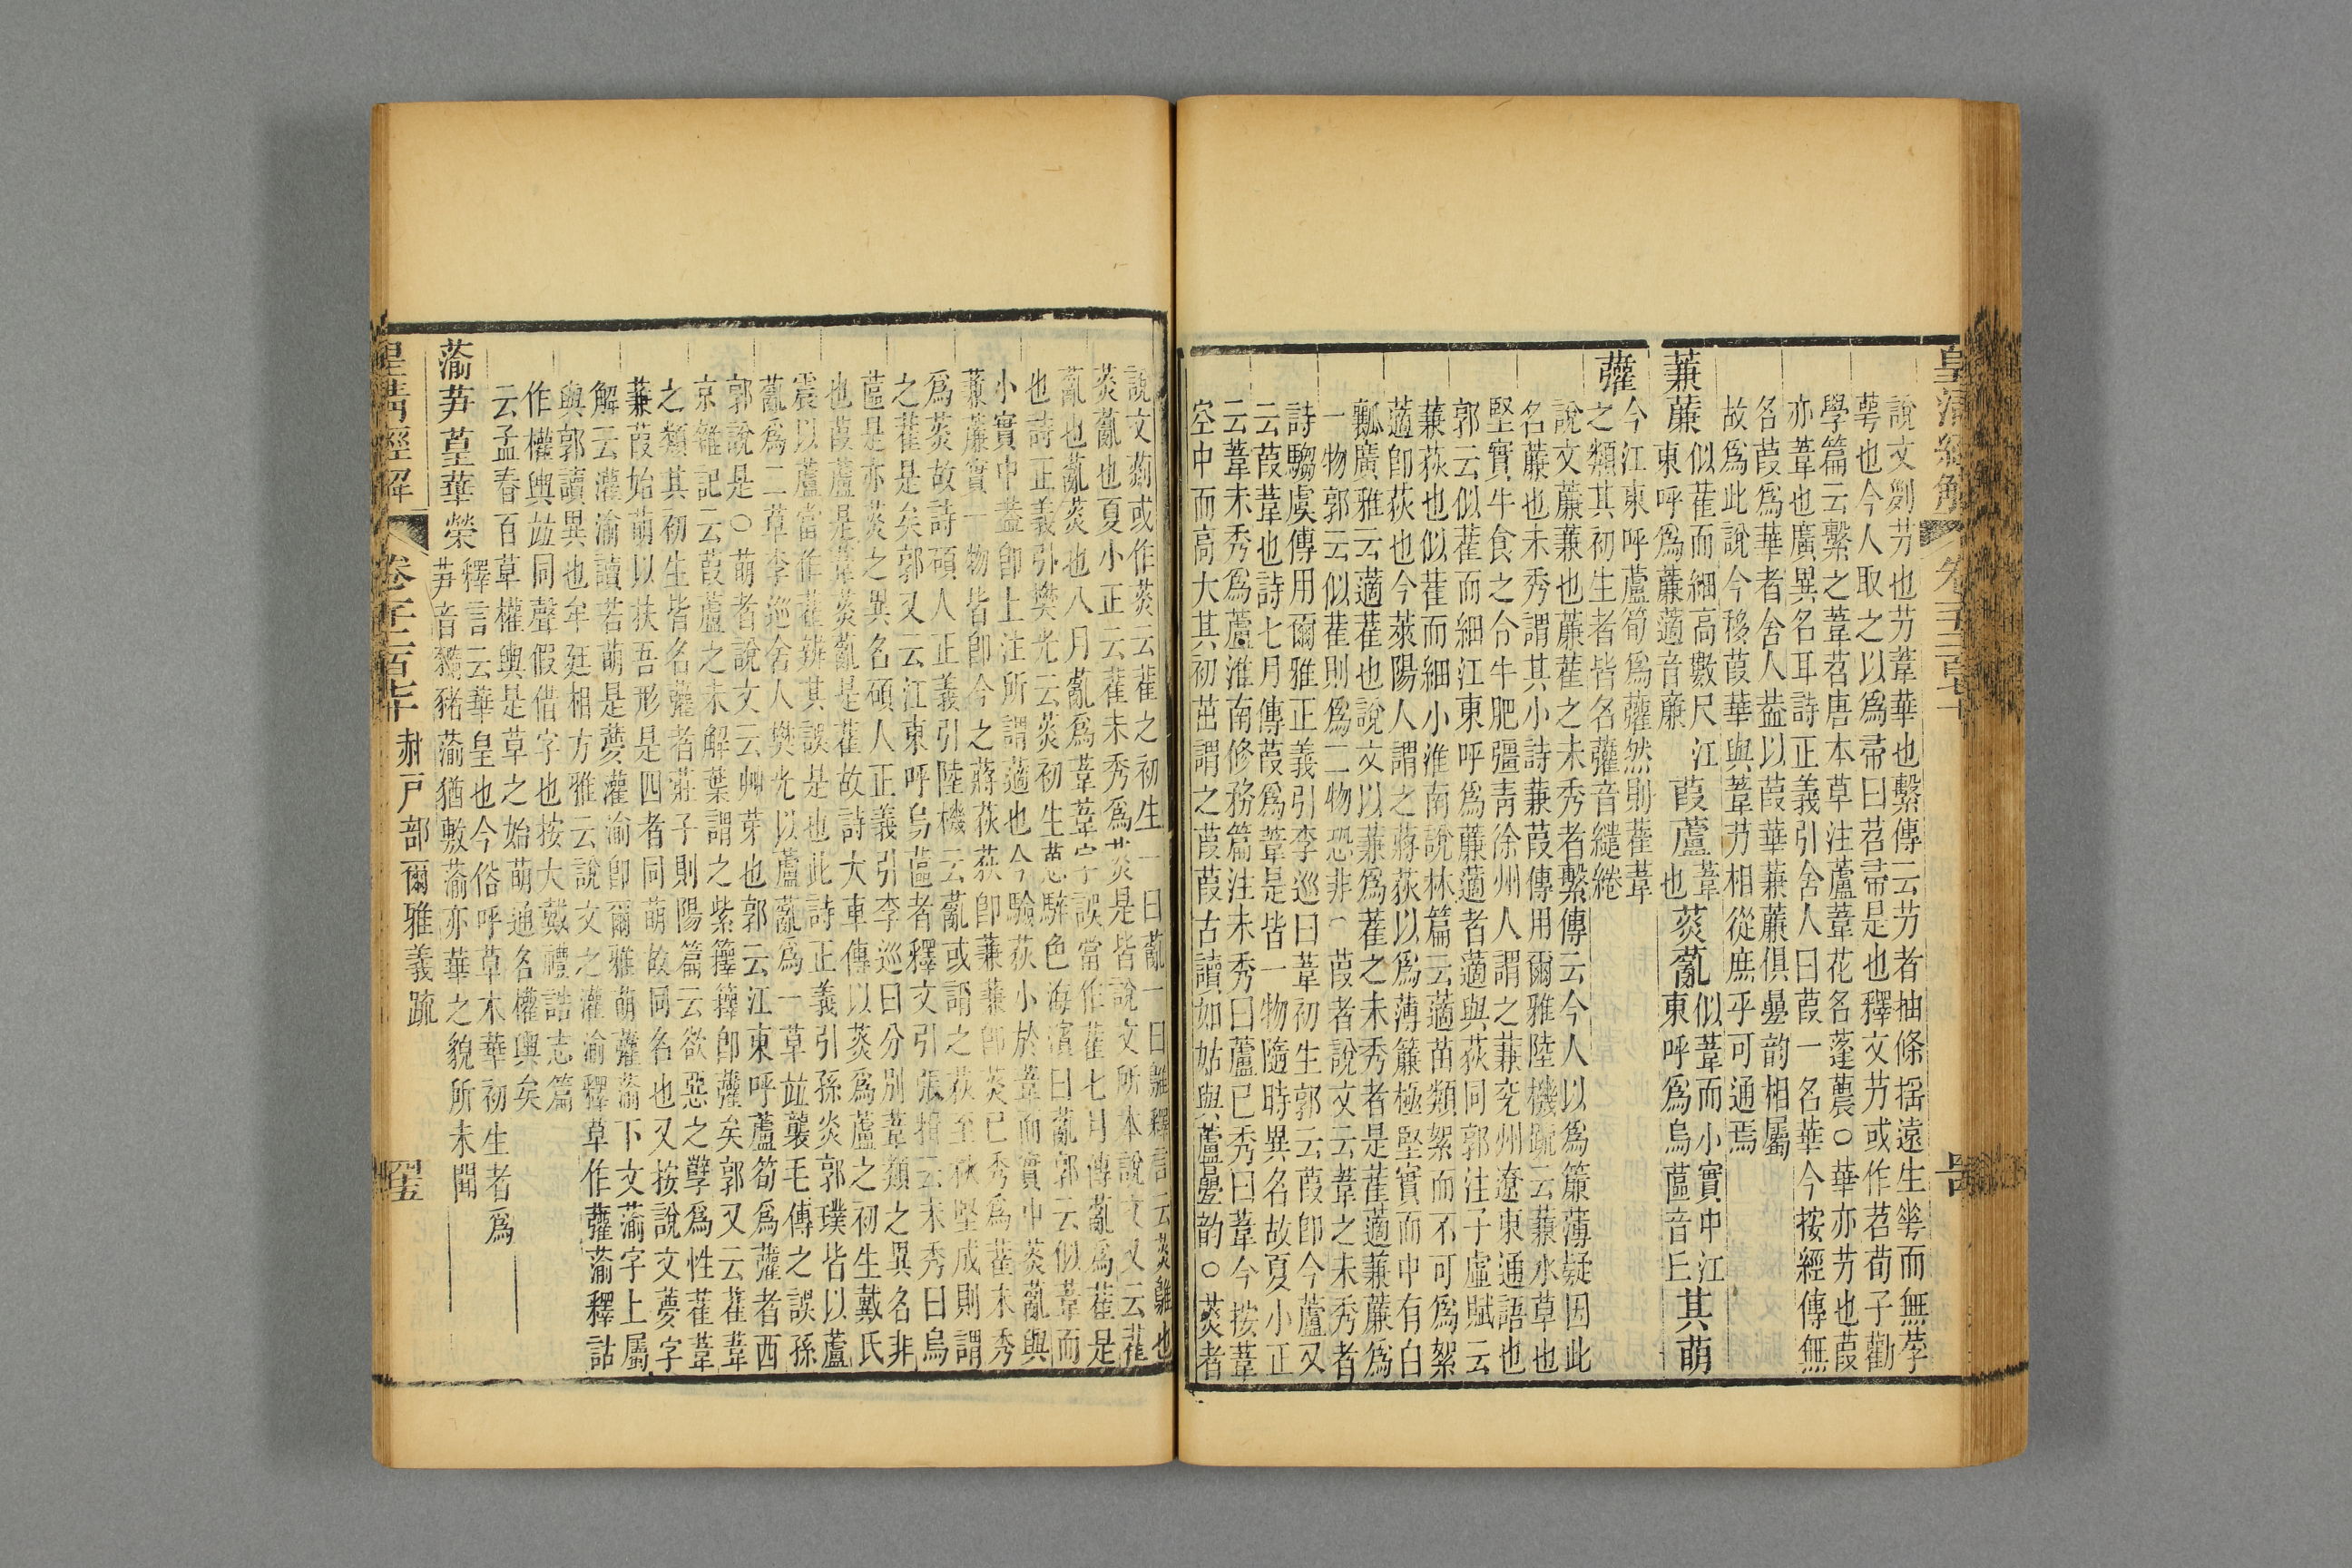 皇清經解　卷一千二百七十
說文茢芀也芀葦華也繫傳云芀者抽條搖遠生華而無莩
萼也今人取之以爲帚曰苕帚是也釋文芀或作苕荀子勸
學篇云繫之葦苕唐本草注蘆葦花名蓬蕽○華亦芀也葭
亦葦也廣異名耳詩正義引舍人曰葭一名華今按經傳無
名葭爲華者舍人葢以葭華蒹薕俱疊韵相屬
故爲此說今移葭華與葦芀相從庶乎可通焉
蒹薕似萑而細高數尺江東呼爲薕藡音廉葭蘆葦也菼薍似葦而小實中江東呼爲烏蓲音丘其萌
虇今江東呼蘆筍爲虇然則萑葦之類其初生者皆名虇音繾綣
說文薕蒹也薕萑之未秀者繫傳云今人以爲簾薄疑因此
名薕也未秀謂其小詩蒹葭傳用爾雅陸機疏云蒹水草也
堅實牛食之令牛肥彊青徐州人謂之蒹兗州遼東通語也
郭云似萑而細江東呼爲薕藡者藡與荻同郭注子虛賦云
蒹荻也似萑而細小淮南說林篇云藡苗類絮而不可爲絮
藡卽荻也今萊陽人謂之蔣荻以爲薄簾極堅實而中有白
瓤廣雅云藡萑也說文以蒹爲萑之未秀者是萑藡蒹薕爲
一物郭云似萑則爲二物恐非○葭者說文云葦之未秀者
詩騶虞傳用爾雅正義引李巡曰葦初生郭云葭卽今蘆又
云葭葦也詩七月傳葭爲葦是皆一物隨時異名故夏小正
云葦未秀爲蘆淮南修務篇注未秀曰蘆已秀曰葦今按葦
空中而高大其初茁謂之葭葭古讀如姑與蘆疊韵○菼者
說文䓤或作菼云萑之初生一曰薍一曰鵻釋言云菼鵻也
菼薍也夏小正云萑未秀爲菼是皆說文所本說文又云萑
薍也薍菼也八月薍爲葦葦字誤當作萑七月傳薍爲萑是
也詩正義引樊光云菼初生葸騂色海濱曰薍郭云似葦而
小實中葢卽上注所謂藡也今驗荻小於葦而實中菼薍與
蒹薕實一物皆卽今之蔣荻荻卽蒹蒹卽菼已秀爲萑未秀
爲菼故詩碩人正義引陸機云薍或謂之荻至秋堅成則謂
之萑是矣郭又云江東呼烏蓲者釋文引張揖云未秀曰烏
蓲是亦菼之異名碩人正義引李巡曰分別葦類之異名非
也葭蘆是葦菼薍是萑故詩大車傳以菼爲蘆之初生戴氏
震以蘆當作萑辨其誤是也此詩正義引孫炎郭璞皆以蘆
薍爲二草李巡舍人樊光以蘆薍爲一草竝襲毛傳之誤孫
郭說是○萌者說文云艸芽也郭云江東呼蘆筍爲虇者西
京雜記云葭蘆之未解葉謂之紫籜籜卽虇矣郭又云萑葦
之類其初生皆名虇者莊子則陽篇云欲惡之孽爲性萑葦
蒹葭始萌以扶吾形是四者同萌故同名也又按說文夢字
解云灌渝讀若萌是夢灌渝卽爾雅萌虇蕍下文蕍字上屬
與郭讀異也牟廷相方雅云說文之灌渝釋草作虇蕍釋詁
作權輿竝同聲假借字也按大戴禮誥志篇
云孟春百草權輿是草之始萌通名權輿矣
蕍芛葟華榮釋言云華皇也今俗呼草木華初生者爲芛音豨豬蕍猶敷蕍亦華之貌所未聞
皇清經解　卷一千二百七十　郝戶部爾雅義疏　四五